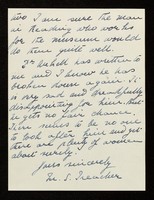 two I am sure the man
in Reading who works
for the museum would
do them quite well.
has written to
me and I know he has
broken down again. It
is very sad and dreadfully
disappointing for him, but
he gets no fair chance.
There seems to be no one
to look after him and yet
there are plenty of women
about surely!
Yours sincerely
E. S. Treacher